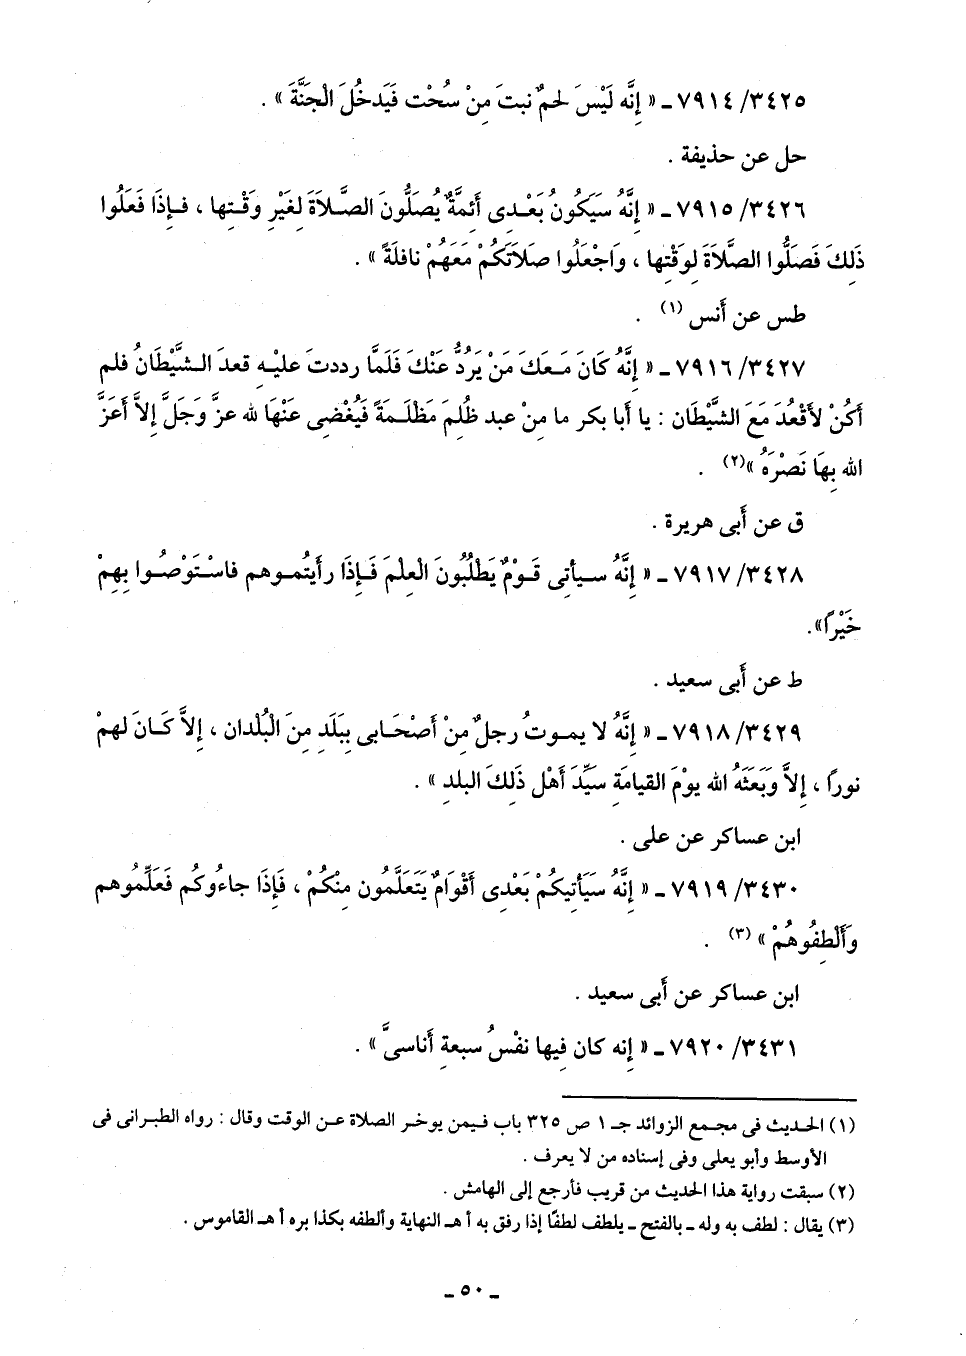 ٧٩١٤/٣٤٢٥ ـ « إِنَّه لَيْسَ لحمٌ نبتَ مِنْ سُحْت فَيَدخُلَ الْجَنَّةَ » .
حل عن حذيفة .
٧٩١٥/٣٤٢٦ ـ « إِنَّهُ سَيَكُونُ بَعْدِى أَئِمَّةٌ يُصَلُّونَ الصَّلاَةَ لِغَيْرِ وَقْتِها ، فَإِذَا فَعَلُوا
ذَلِكَ فَصَلُّوا الصَّلاَةَ لِوَقْتِها ، وَاجْعَلُوا صَلاَتَكُمْ مَعَهُمْ نافلَةً » .
طس عن أَنس (١) .
٧٩١٦/٣٤٢٧ ـ « إِنَّهُ كَانَ مَعَكَ مَنْ يَرُدُّ عَنْكَ فَلَمَّا رددتَ عليْهِ قعدَ الشَّيْطَانُ فلم
أَكُنْ لأَقْعُدَ مَعَ الشَّيْطَان : يا أَبا بكر ما مِنْ عبد ظُلِمَ مَظْلَمَةً فَيُغْضِى عَنْهَا لله عزَّ وَجَلَّ إِلاَّ أَعَزَّ
الله بِهَا نَصْرَهُ »(٢) .
ق عن أَبى هريرة .
٧٩١٧/٣٤٢٨ ـ « إِنَّهُ سيأتِى قَوْمٌ يَطْلُبُونَ الْعِلْمَ فَإِذَا رأَيتُموهم فاسْتَوْصُوا بِهِمْ
خَيْرًا».
ط عن أَبى سعيد .
٧٩١٨/٣٤٢٩ ـ « إِنَّهُ لا يموتُ رجلٌ مِنْ أَصْحَابِى بِبَلَدٍ مِنَ الْبُلْدان ، إِلاَّ كَانَ لهمْ
نورًا ، إِلاَّ وَبَعَثَهُ الله يوْمَ القيامَةِ سَيِّدَ أَهْلِ ذَلِكَ البلدِ » .
ابن عساكر عن على .
٧٩١٩/٣٤٣٠ ـ « إِنَّهُ سَيَأْتِيكُمْ بَعْدِى أَقْوَامٌ يَتَعَلَّمُون مِنْكُمْ ، فَإِذَا جاءُوكُم فَعَلِّمُوهم
وَأَلْطِفُوهُمْ » (٣) .
ابن عساكر عن أَبى سعيد .
٧٩٢٠/٣٤٣١ ـ « إِنه كان فِيها نفْسُ سبعةِ أَناسىَّ » .
(١) الحديث فى مجمع الزوائد جـ ١ ص ٣٢٥ باب فيمن يوخر الصلاة عن الوقت وقال : رواه الطبرانى فى
الأوسط وأبو يعلى وفى إسناده من لا يعرف .
(٢) سبقت رواية هذا الحديث من قريب فأرجع إلى الهامش .
(٣) يقال : لطف به وله ـ بالفتح ـ يلطف لطفًا إذا رفق به أ هـ النهاية وألطفه بكذا بره أ هـ القاموس .
ـ ٥٠ ـ